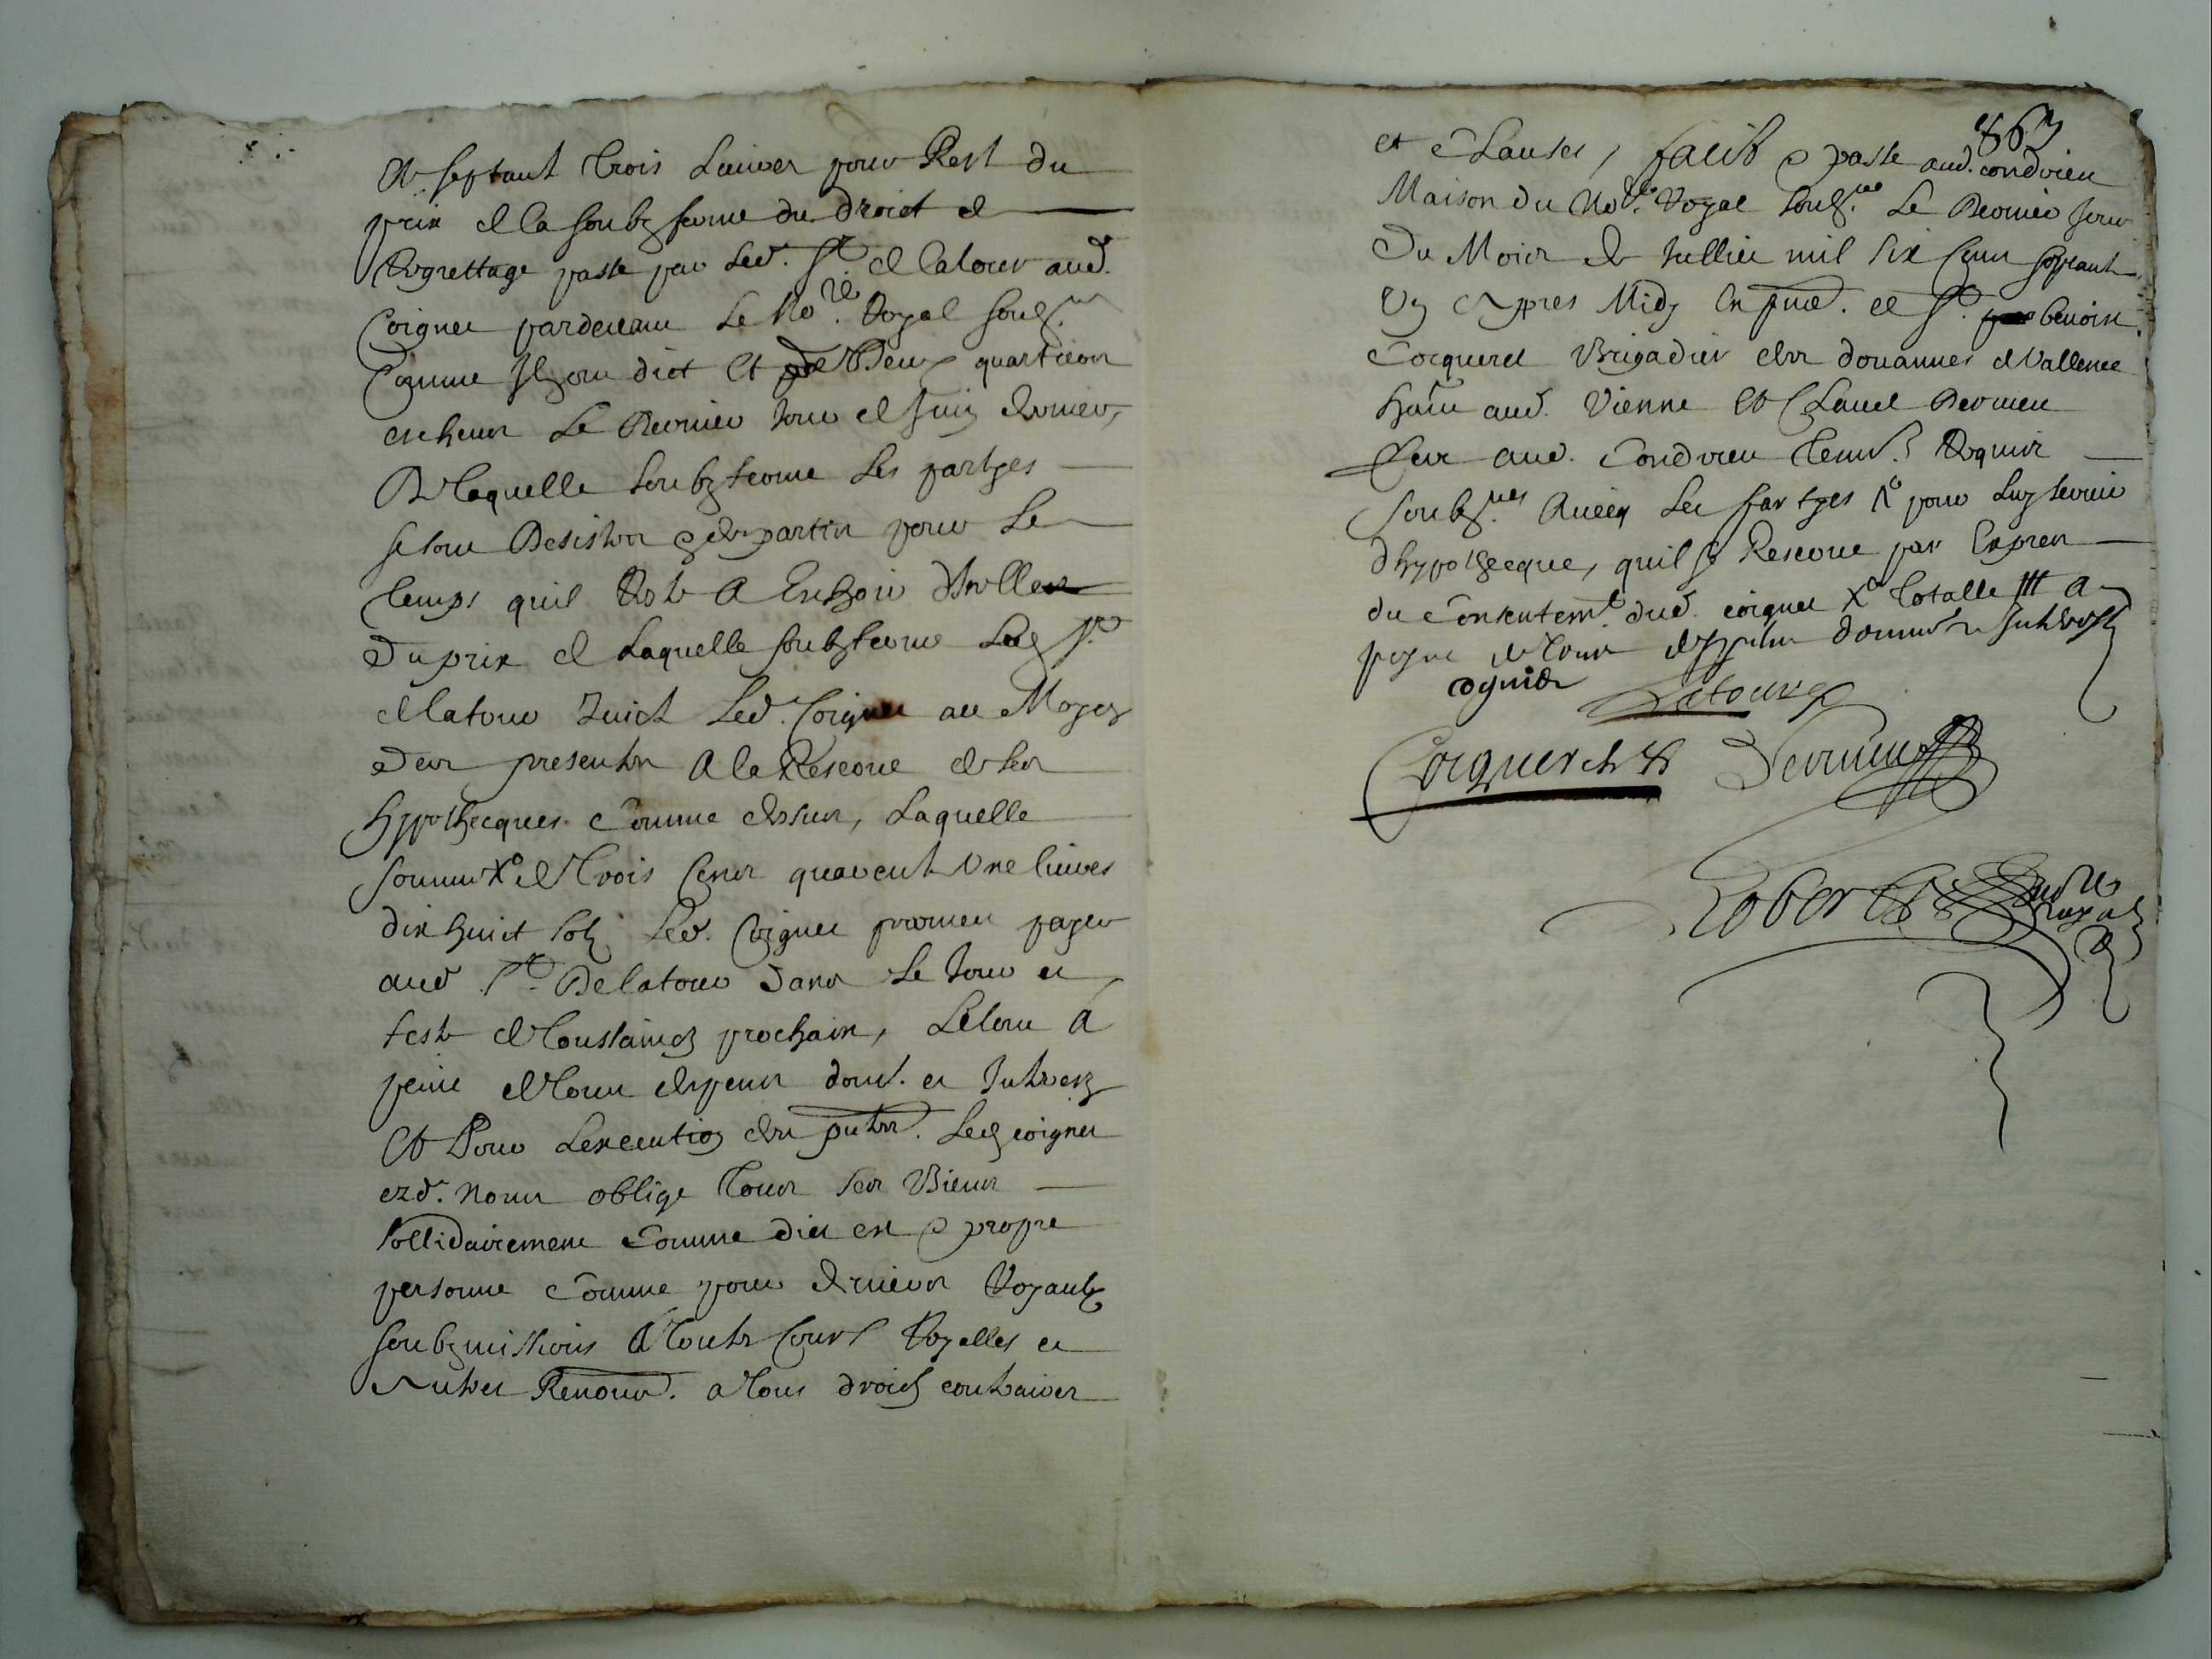 et septant trois livres pour Rest du
prix de la soubzferme du droict de
Regrettage passe par led. Sr de latour aud.
Coignet pardevant le Nore Royal soubz.né
Comme Ilz ont dict et de Deux quartiers
escheus Le Premier Jour de Juin dernier,
De laquelle soubzferme Les partyes
se sont Desistes et departies pour Le
temps quil Reste A Escheoir
Du prix de Laquelle soubzferme Led Sr
de latour led. Coignet au Moyen
des presentes A la Reserve de ses
hypothecques Comme dessus, Laquelle
somme X de Trois Cens quarente Une livres
dix huict solz Led. Coignet promet payer
aud Sr De latour dans Le Jour et
feste de Toussainctz prochain, Letout A
peine de Tous despens dom. et Intherestz
Et Pour Lexecution des pntes. Led coignet
ezd. noms oblige Tous ses Biens
sollidairement Comme dict est et propre
personne Comme pour deniers Royaulx
soubzmissions A Toutes Cours Royalles et
Autres Renonce. a tous droictz contraires
863
et Clauses, faict et passe aud. condrieu
Maison du Nore. Royal soubz.né Le Premier Jour
Du Mois de Juillet mil six Cens septante
Un Apres Midy En pnce. de Sr. benoist
Cocquerel Brigadier des douannes de Vallence
hant aud. Vienne et Claude Dermen
aud. Condrieu temoins Requis
soubz.nés Avecq Les partyes X pour Luy servir
dhypothecque, quil se Reserve par Expres
du Consentemt. dud. coignet X totalle ### A
peyne de tous despens dommes Intherestz
cogniet
Latour
Cocquerel
Dermen
Robert Nore
Royal